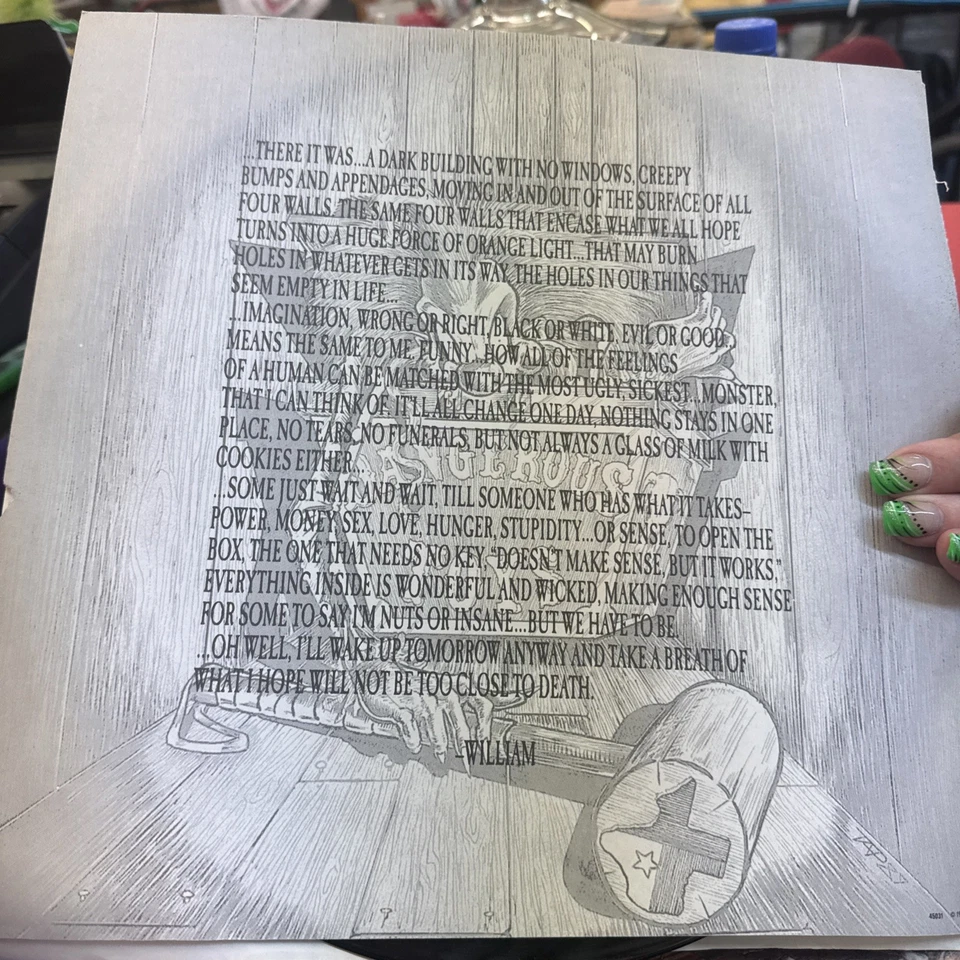 ...THERE IT WAS...A DARK BUILDING WITH NO WINDOWS, CREEPY
BUMPS AND APPENDAGES, MOVING IN AND OUT OF THE SURFACE OF ALL
FOUR WALLS. THE SAME FOUR WALLS THAT ENCASE WHAT WE ALL HOPE
TURNS INTO A HUGE FORCE OF ORANGE LIGHT...THAT MAY BURN
HOLES IN WHATEVER GETS IN ITS WAY. THE HOLES IN OUR THINGS THAT
SEEM EMPTY IN LIFE...
...IMAGINATION, WRONG OR RIGHT, BLACK OR WHITE, EVIL OR GOOD,
MEANS THE SAME TO ME. FUNNY...HOW ALL OF THE FEELINGS
OF A HUMAN CAN BE MATCHED WITH THE MOST UGLY, SICKEST...MONSTER,
THAT I CAN THINK OF. IT'LL ALL CHANGE ONE DAY, NOTHING STAYS IN ONE
PLACE, NO TEARS, NO FUNERALS, BUT NOT ALWAYS A GLASS OF MILK WITH
COOKIES EITHER...
...SOME JUST WAIT AND WAIT, TILL SOMEONE WHO HAS WHAT IT TAKES–
POWER, MONEY, SEX, LOVE, HUNGER, STUPIDITY...OR SENSE, TO OPEN THE
BOX, THE ONE THAT NEEDS NO KEY. "DOESN'T MAKE SENSE, BUT IT WORKS."
EVERYTHING INSIDE IS WONDERFUL AND WICKED, MAKING ENOUGH SENSE
FOR SOME TO SAY I'M NUTS OR INSANE...BUT WE HAVE TO BE.
...OH WELL, I'LL WAKE UP TOMORROW ANYWAY AND TAKE A BREATH OF
WHAT I HOPE WILL NOT BE TOO CLOSE TO DEATH.
–WILLIAM
45031 ©